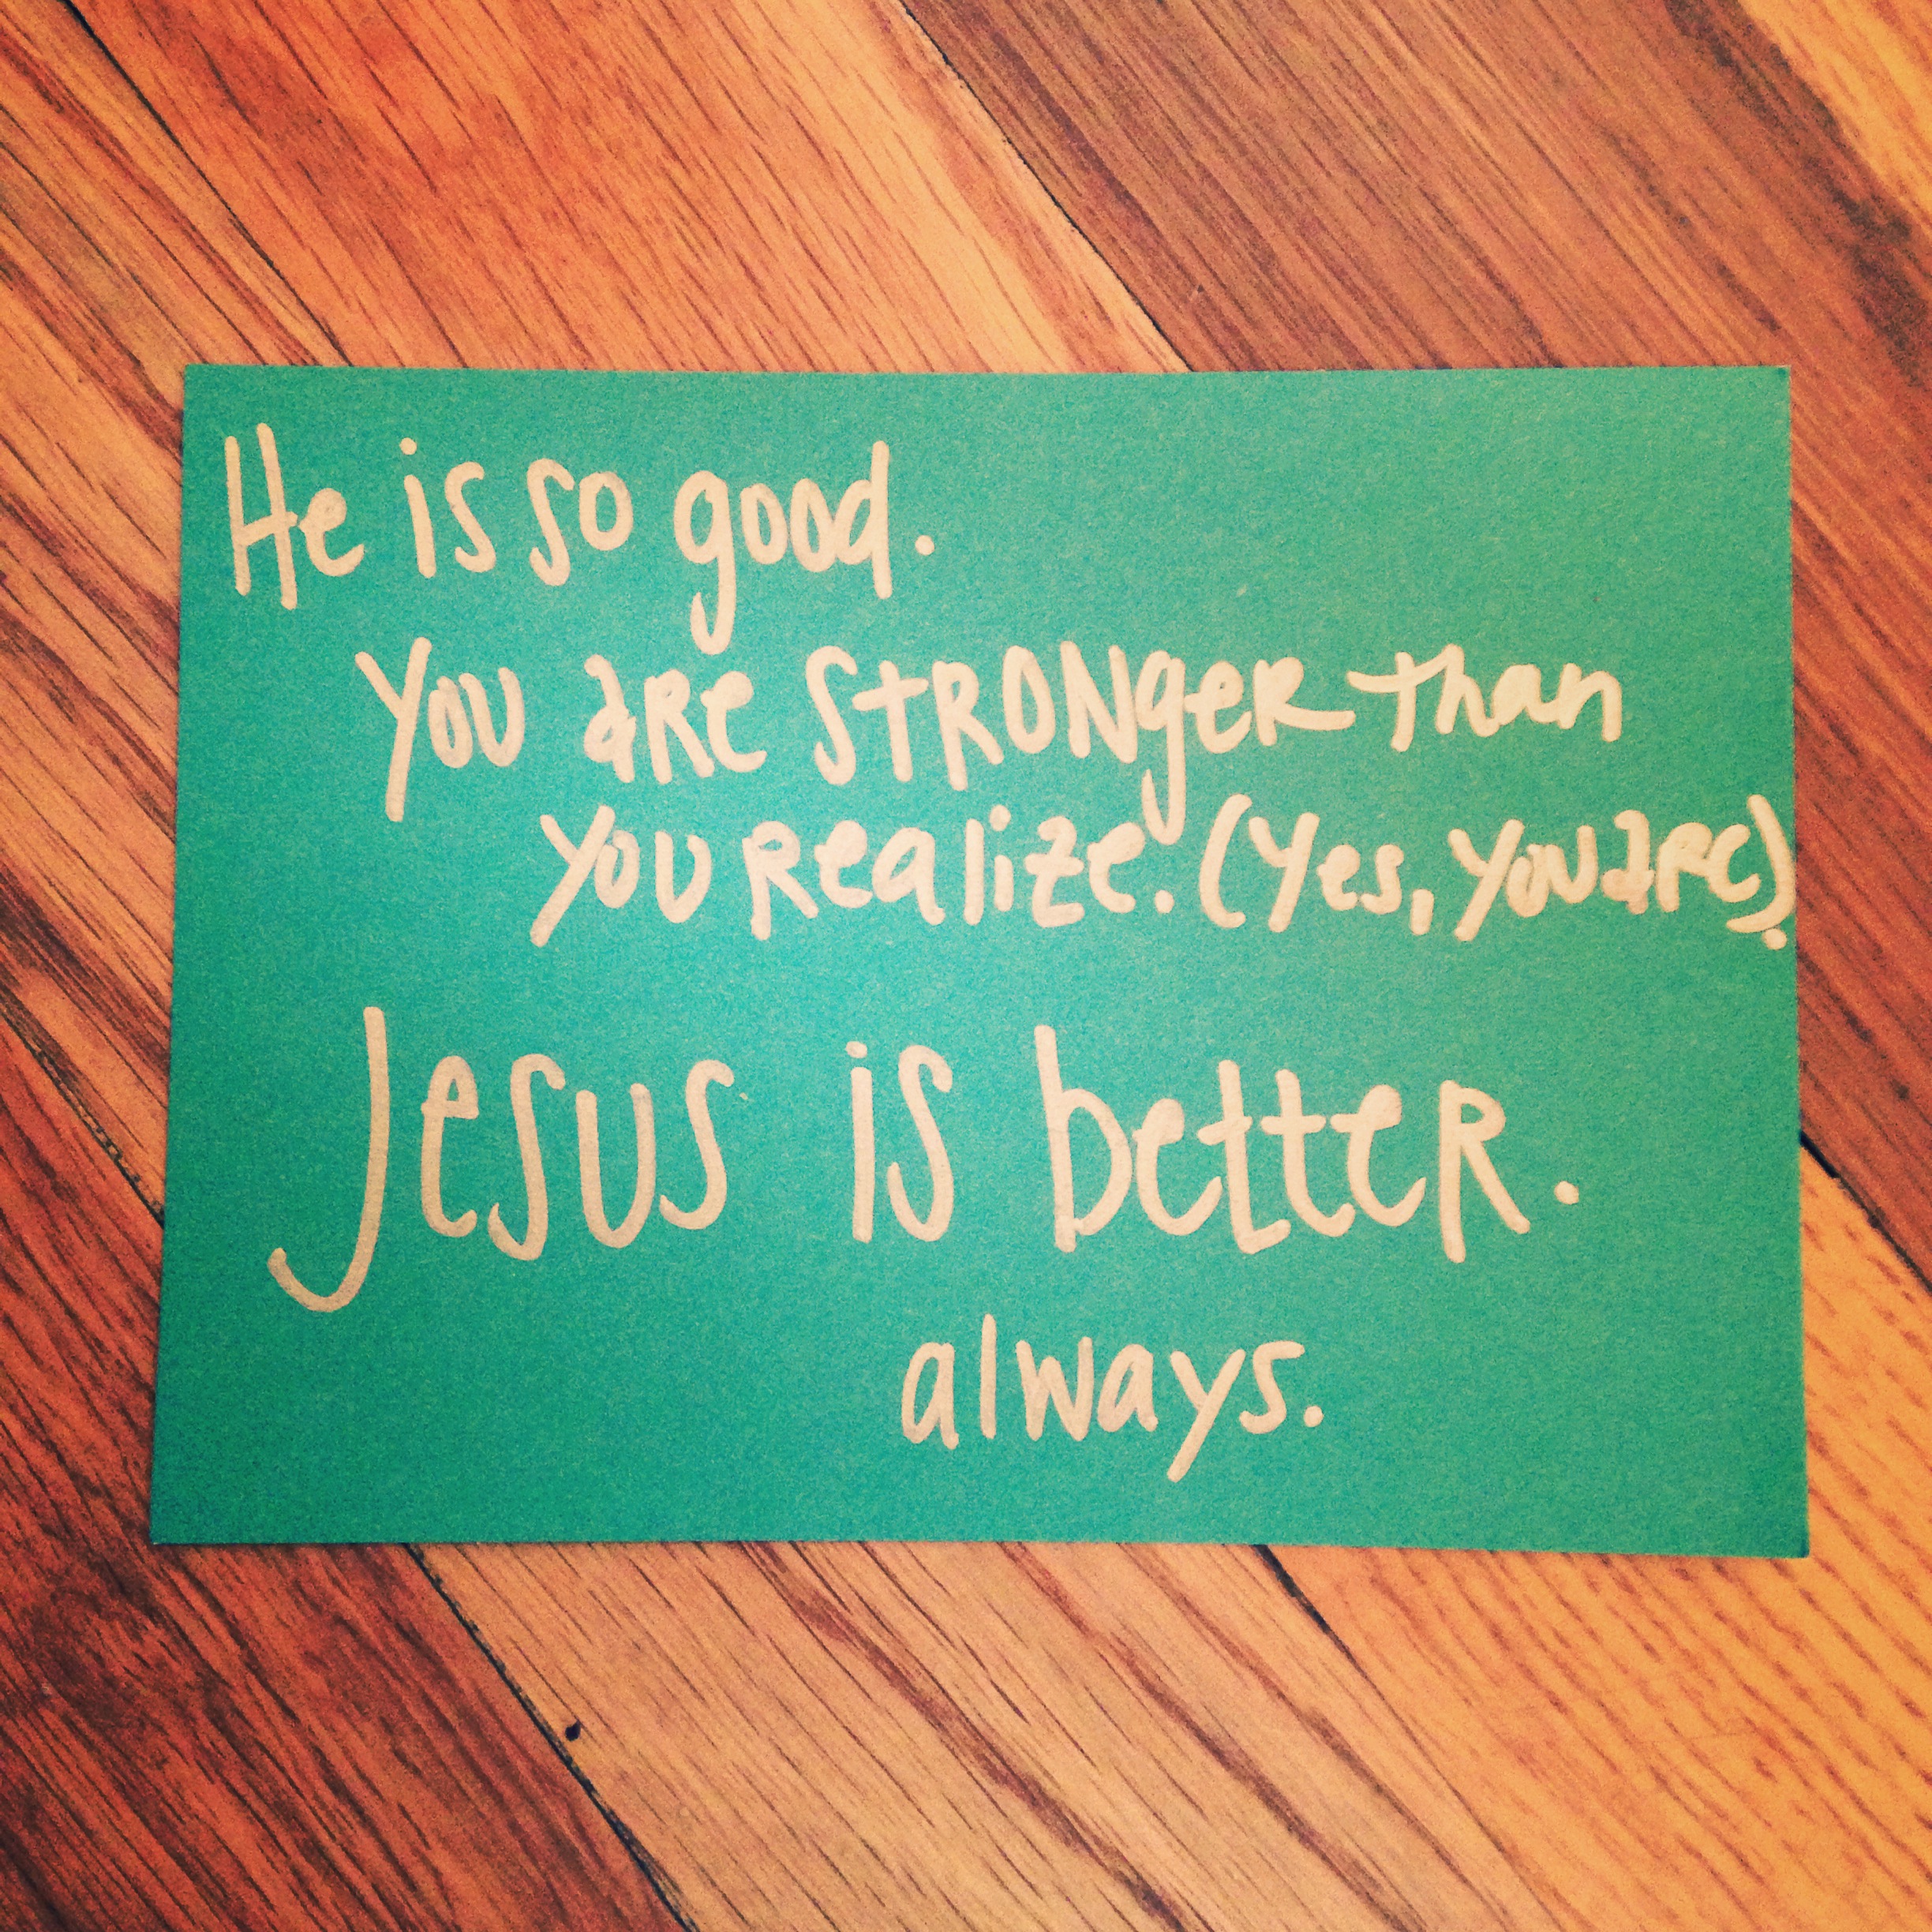 He is so good.
You are stronger than
you realize. (Yes, you are).
Jesus is better.
always.